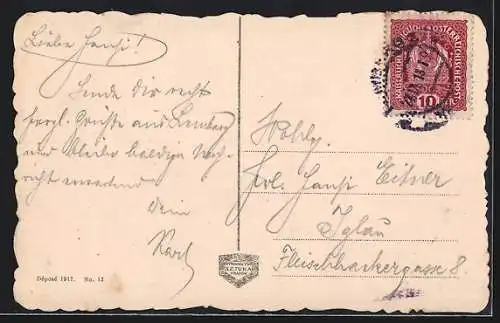 Liebe Hansi!
Sende Dir recht
herzl. Grüsse aus Lemberg
und bleibe baldige Nach-
richt erwartend
Dein
Karl
Déposé 1917. No. 12
KAISERLICHE KÖNIGLICHE ÖSTERREICHISCHE POST
10
Wohlg.
Frl. Hansi Eitner
Iglau
Fleischhackergasse 8.